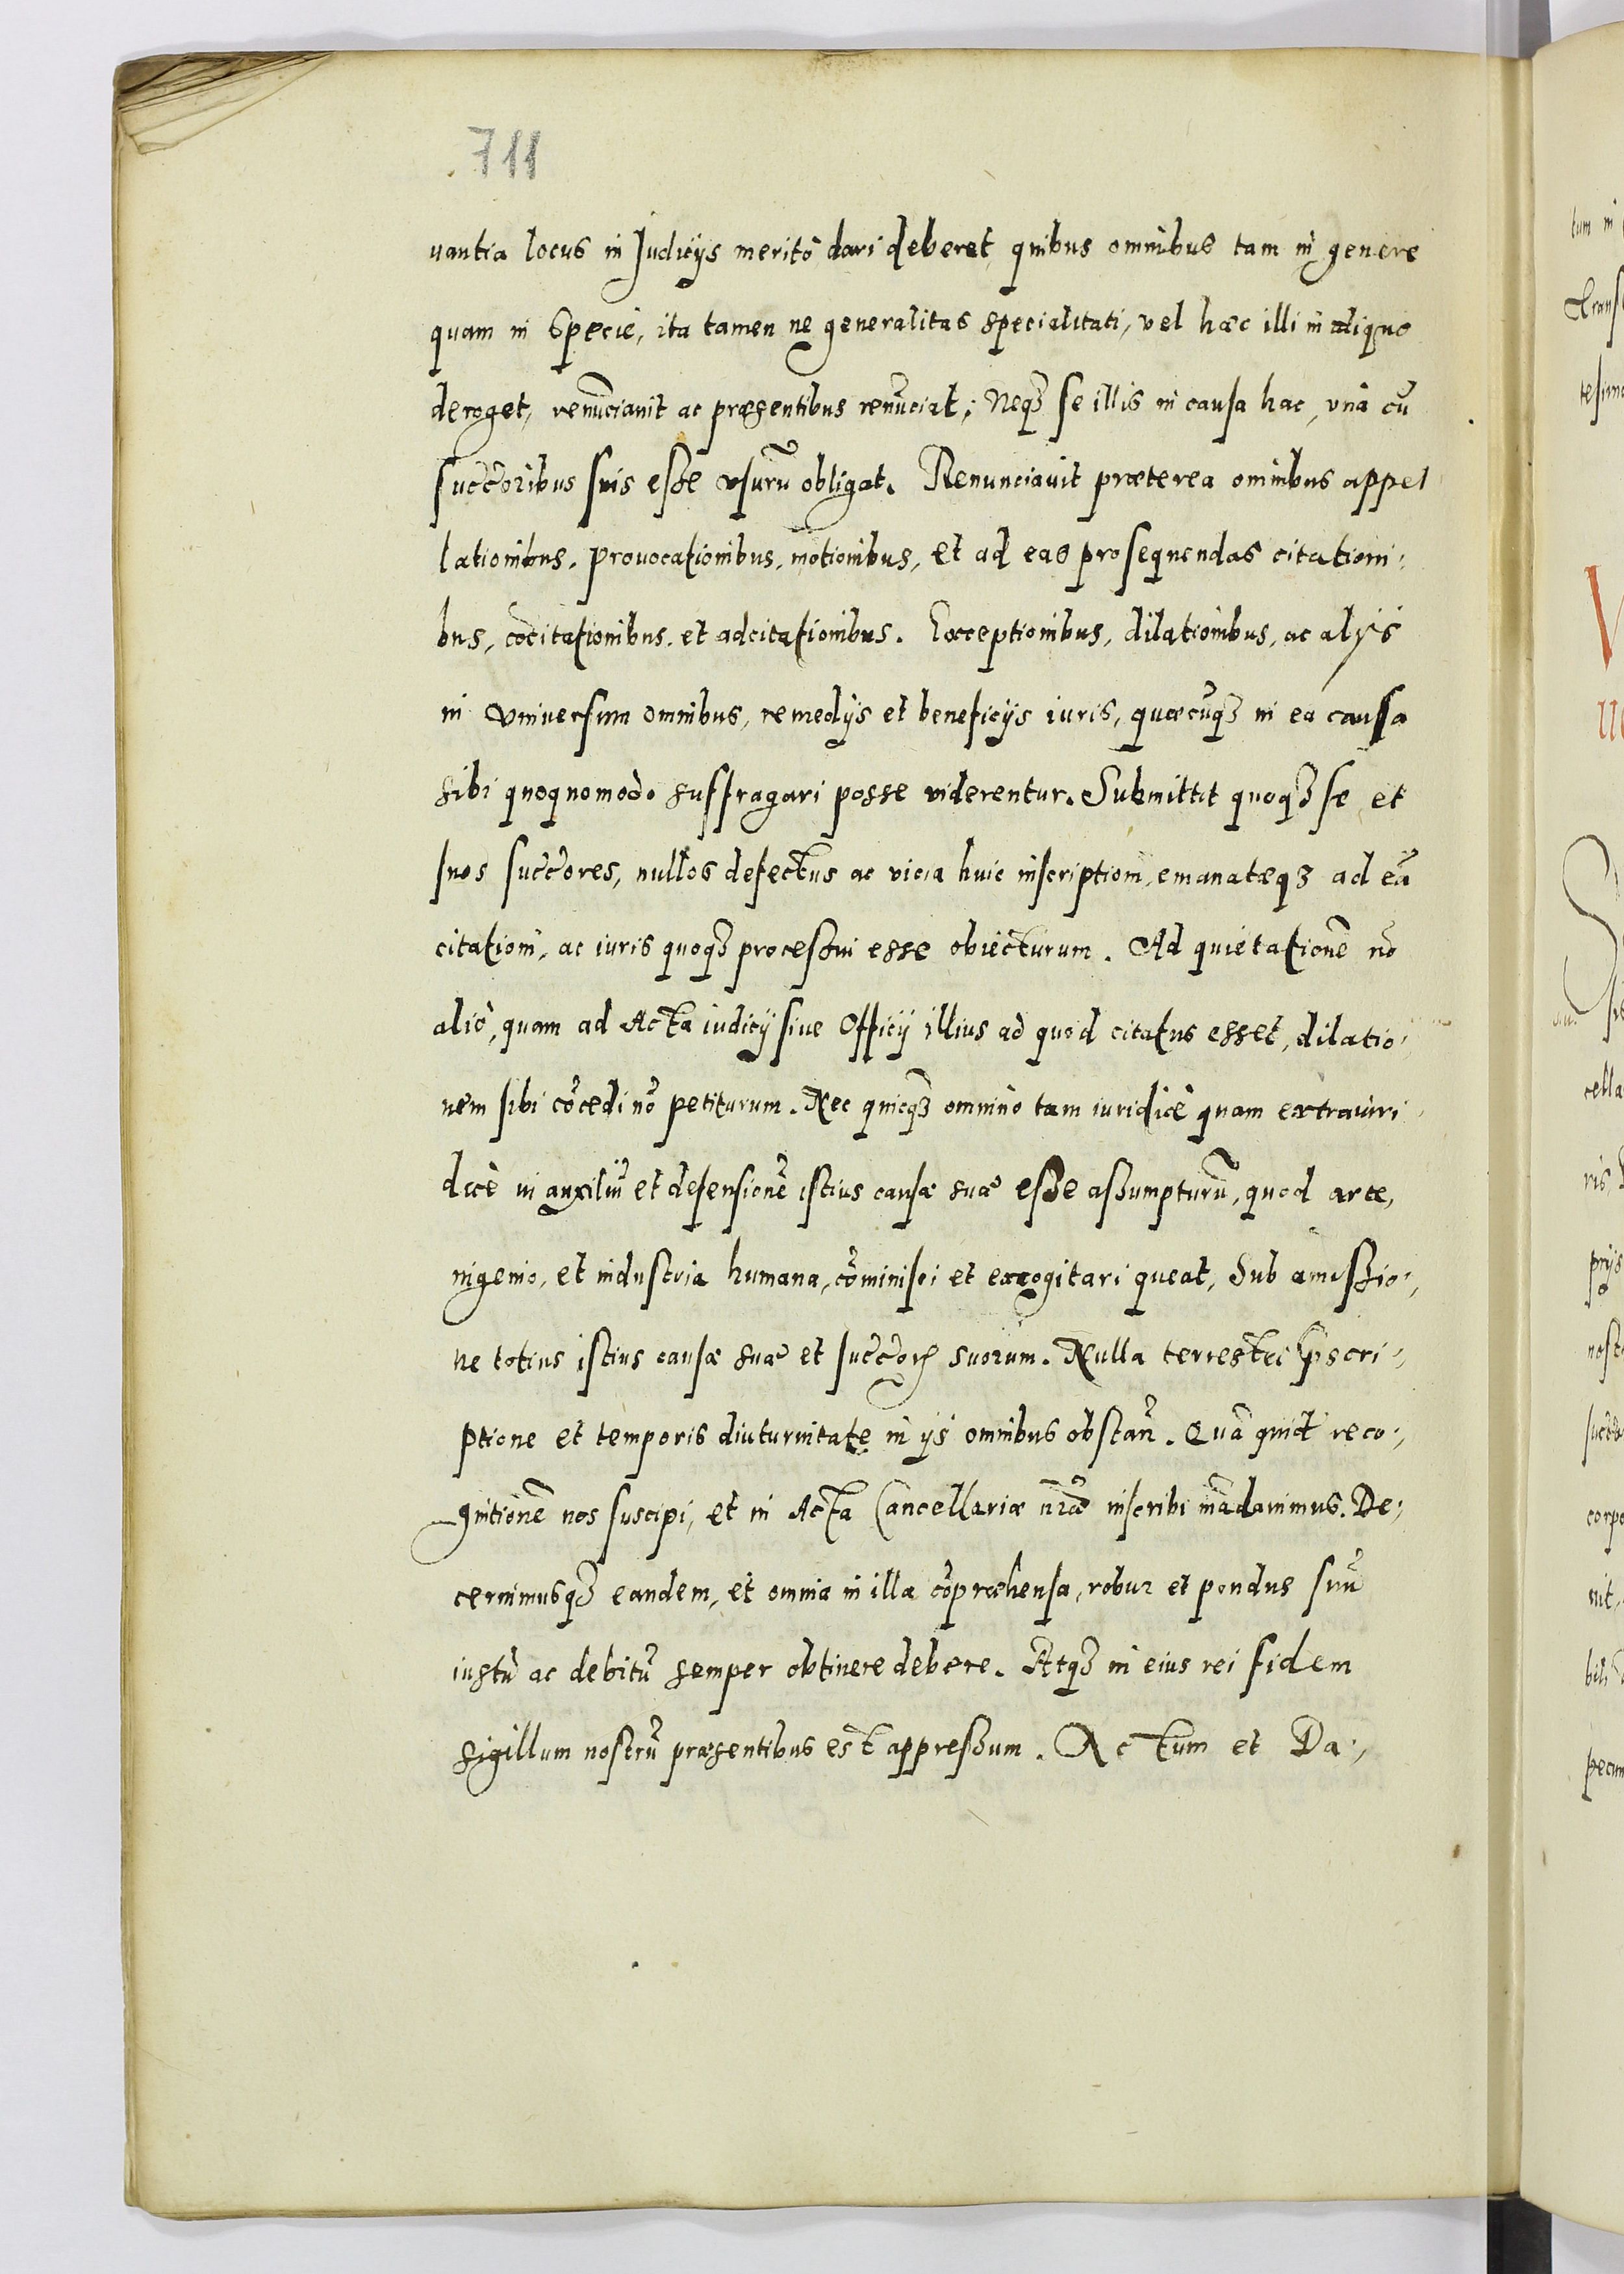 711
vantia locus in Judicijs meritò dari deberet, quibus omnibus tam in genere
quam in Specie, ita tamen ne generalitas specialitati, vel hæc illi in aliquo
deroget, renũciauit ac præsentibus renũciat; Neqȝ se illis in causa hac, vnà cũ
succ̃oribus suis esse vsurũ obligat. Renunciauit præterea omnibus appel
lationibus, prouocationibus, motionibus, et ad eas prosequendas citationi,
bus, cõcitationibus, et adcitationibus. Exceptionibus, dilationibus, ac alijs
in vniuersum omnibus, remedijs et beneficijs iuris, quæcũqȝ in ea causa
sibi quoquomodo suffragari posse viderentur. Submittit quoqȝ se et
suos succ̃ores, nullos defectus ac vicia huic inscriptioni, emanatæqȝ ad eã
citationi, ac iuris quoqȝ processui esse obiecturum. Ad quietationẽ nõ
aliò, quam ad Acta iudicij siue Officij illius ad quod citatus esset, dilatio,
nem sibi cõcedi nõ petiturum. Nec quicqȝ omnino tam iuridicè quam extraiuri
dicè in auxiliũ et defensionẽ istius causæ suæ esse assumpturũ, quod arte,
ingenio, et industria humana, cõminisci et excogitari queat, Sub amissio,
ne totius istius causæ suæ et succ̃orꝝ suorum. Nulla terrestri p̃scri,
ptione et temporis diuturnitate in ijs omnibus obstañ. Quã quid̃ reco,
gnitionẽ nos suscipi, et in Acta Cancellariæ nr̃æ inscribi mãdauimus. De,
cernimusqȝ eandem, et omnia in illa cõpræhensa, robur et pondus suũ
iustũ ac debitũ semper obtinere debere. Atqȝ in eius rei fidem
sigillum nostrũ præsentibus est appressum. Actum et Da,